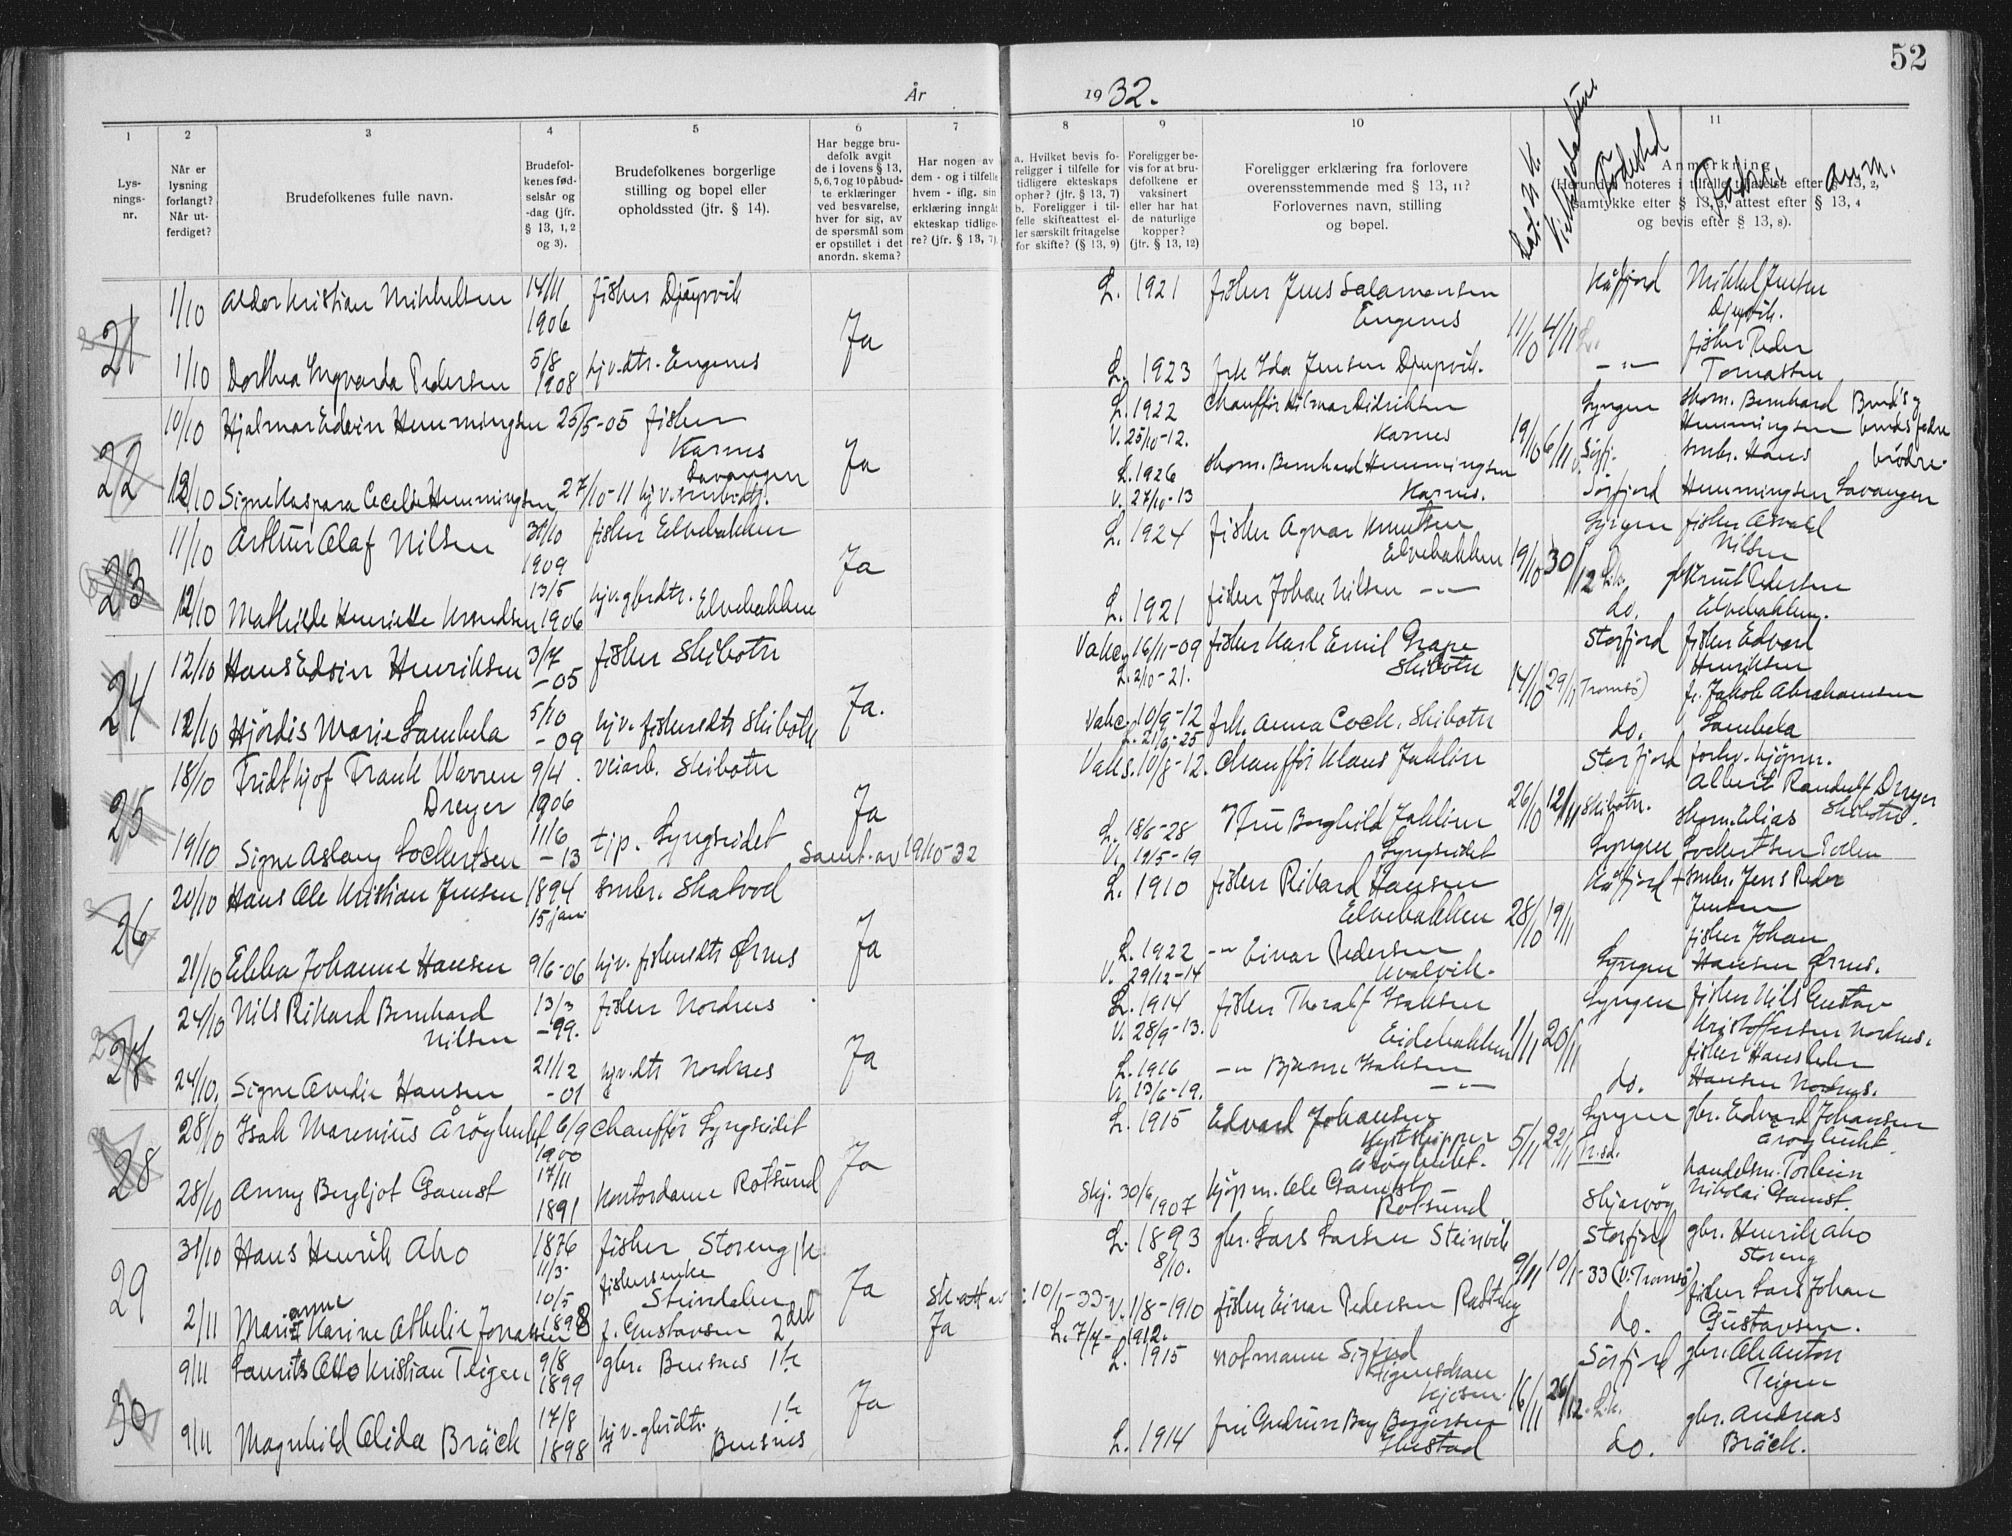 52
År 1932.
1 2 3 4 5 6 7 8 9 10 11
Lysningsnr.
Når er lysning forlangt? Når utferdiget?
Brudefolkenes fulle navn.
Brudefolkenes fødselsår og -dag (jfr. § 13, 1, 2 og 3).
Brudefolkenes borgerlige stilling og bopel eller opholdssted (jfr. § 14).
Har begge brudefolk avgit de i lovens § 13, 5, 6, 7 og 10 påbudte erklæringer ved besvarelse, hver for sig, av de spørsmål som er opstillet i det anordn. skema?
Har nogen av dem - og i tilfelle hvem - iflg. sin erklæring inngåt ekteskap tidligere? (jfr. § 13, 7).
a. Hvilket bevis foreligger i tilfelle for tidligere ekteskaps ophør? (jfr. § 13, 7) b. Foreligger i tilfelle skifteattest eller særskilt fritagelse for skifte? (§ 13, 9)
Foreligger bevis for at brudefolkene er vaksinert eller har hat de naturlige kopper? (jfr. § 13, 12)
Foreligger erklæring fra forlovere overensstemmende med § 13, 11? Forlovernes navn, stilling og bopel.
Anmerkning
Herunder noteres i tilfelle tillatelse efter § 13, 2, samtykke efter § 13, 3, attest efter § 13, 4 og bevis efter § 13, 8).
Fødested
anm.
21 1/10 Aldor Kristian Mikkelsen 14/11 1906 fisker Djupvik Ja L. 1921 fisker Jens Salamonsen Engenes 11/10 4/11 Kåfjord Mikkel Jensen Djupvik.
1/10 Dorthea Ingvarda Pedersen 5/8 1908 hjv. dtr. Engenes L. 1923 frk Ida Jensen Djupvik. — " — fisker Peder Tomassen
22 10/10 Hjalmar Edvin Hemmingsen 25/5-05 fisker Karnes Ja L. 1922 V. 25/10-12. Chauffør Hilmar Didriksen Karnes 19/10 6/11 Lyngen Bernhard Hemmingsen
12/10 Signe Kaspara Cecelie Hemmingsen 27/10-11 Lavangen L. 1926 V. 27/10-13 Bernhard Hemmingsen Karnes. Sørfjord smbr. Hans Hemmingsen Lavangen
Brud's og brudgs fedre brødre.
23 11/10 Arthur Olaf Nilsen 30/10 1909 fisker Elvebakken Ja L. 1924 fisker Agnar Knutsen Elvebakken 19/10 30/12 Lyngen fisker Osvald Nilsen
12/10 Mathilde Henriette Knudsen 13/5 1906 hjv. gbrdtr. Elvebakken L. 1921 fisker Johan Nilsen — " — do. Knut Pedersen Elvebakken.
24 12/10 Hans Edvin Henriksen 3/7 -05 fisker Skibotn Ja. Vakc. 16/11-09 L. 2/10-21. fisker Karl Emil Grape Skibotn 14/10 29/11 Storfjord (Tromsø) fisker Edvard Henriksen
12/10 Hjördis Marie Lambela 5/10 -09 hjv. fiskerdtr Skibotn Vakc. 10/9-12 L. 21/6-25 frk. Anna Cock. Skibotn do. f. Jakob Abrahamsen Lambela
25 18/10 Fridthjof Frank Warren Dreyer 9/4. 1906 veiarb. Skibotn Ja Vaks. 10/8-12. Chauffør Klaus Jaklin 26/10 12/11 Storfjord Skibotn. forhv. kjøpm. Albert Randulf Dreyer Skibotn.
19/10 Signe Aslaug Lockertsen 11/6 -13 tjp. Lyngseidet Samt. av 19/10-32 L. 18/6-28 V. 19/5-19 Fru Borghild Jaklin Lyngseidet Lyngen Elias Lockertsen Pollen
26 20/10 Hans Ole Kristian Jensen 1894 15 jan. smbr. Skatvod Ja L. 1910 fisker Rikard Hansen Elvebakken 28/10 19/11 Kåfjord + smbr. Jens Peder Jensen
21/10 Ebba Johanne Hansen 9/6-06 hjv. fiskerdtr Ørnes L. 1922 V. 29/12-14 — " Einar Pedersen Kvalvik. Lyngen fisker Johan Hansen Ørnes.
27 24/10 Nils Rikard Bernhard Nilsen 13/3 -99. fisker Nordnes Ja L. 1914 V. 28/9-13. fisker Thoralf Isaksen Eidebakken 1/11 20/11 Lyngen fisker Nils Gustav Kristoffersen Nordnes.
24/10. Signe Ovedie Hansen 21/12 -01 hjv. dtr Nordnes L. 1916 V. 13/6-19. — " Bjarne Isaksen — " — do. fisker Hans Peder Hansen Nordnes.
28 28/10 Isak Marenius Årøybukt 6/9 1900 Chauffør Lyngseidet Ja L. 1915 Edvard Johansen Årøybukt. 5/11 22/11 Lyngen gbr. Edvard Johansen Årøybukt.
28/10 Anny Bergljot Gamst 17/11 1891 Kontordame Rotsund Skj. 30/6 1907 kjøpm. Ole Gamst Rotsund Skjervøy handelsm. Torbein Nikolai Gamst.
29 31/10 Hans Henrik Aho 1876 11/3. fisker Storeng Ja L. 1893 8/10. gbr. Lars Larsen Steinvik 9/11 10/1-33 (v. Tromsø) Storfjord gbr. Henrik Aho Storeng
2/11 Marianne Karine Athelie Jonassen 10/5 1898 fiskerenke Steindalen f. Gustavsen 2det Ja sk. att av 10/1-33. L. 7/7-1912. V. 1/8-1910 fisker Einar Pedersen Rasteby do. fisker Lars Johan Gustavsen.
30 9/11 Laurits Otto Kristian Teigen 9/8 1899 gbr. Bensnes Ja L. 1915 Sigfred Kjosen. 16/11 26/12 Sørfjord gbr. Ole Anton Teigen
9/11 Magnhild Alida Bräck 17/8 1898 hjv. gbrdtr. Bensnes L. 1914 fru Gudrun Hustad do. gbr. Andreas Bräck.